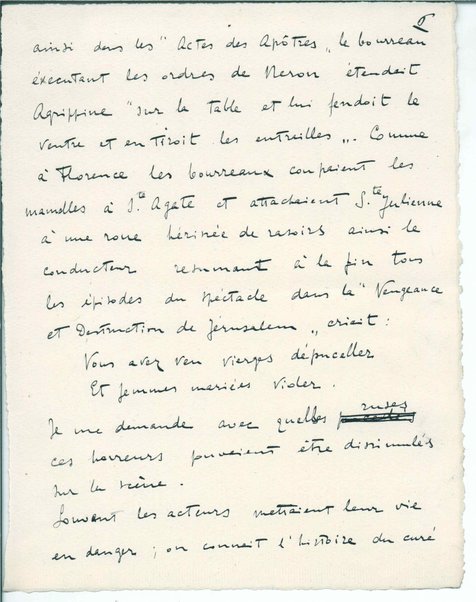 6
ainsi dans les "Actes des Apôtres„ le bourreau
éxecutant les ordres de Neron étendait
Agrippine "sur la table et lui fendoit le
ventre et en tiroit les entreilles„. Comme
à Florence les bourreaux coupaient les
mamelles à Ste Agate et attachaient Ste Julienne
à une roue hérissée de rasoirs ainsi le
conducteur resumant à la fin tous
les épisodes du spectacle dans la "Vengeance
et Destruction de Jérusalem„ criait :
Vous avez veu vierges dépuceller
Et femmes mariées violer.
Je me demande avec quelles ruses
ces horreurs pouvaient être dissimulés
sur la scène.
Souvent les acteurs mettaient leur vie
en danger ; on connait l'histoire du curé